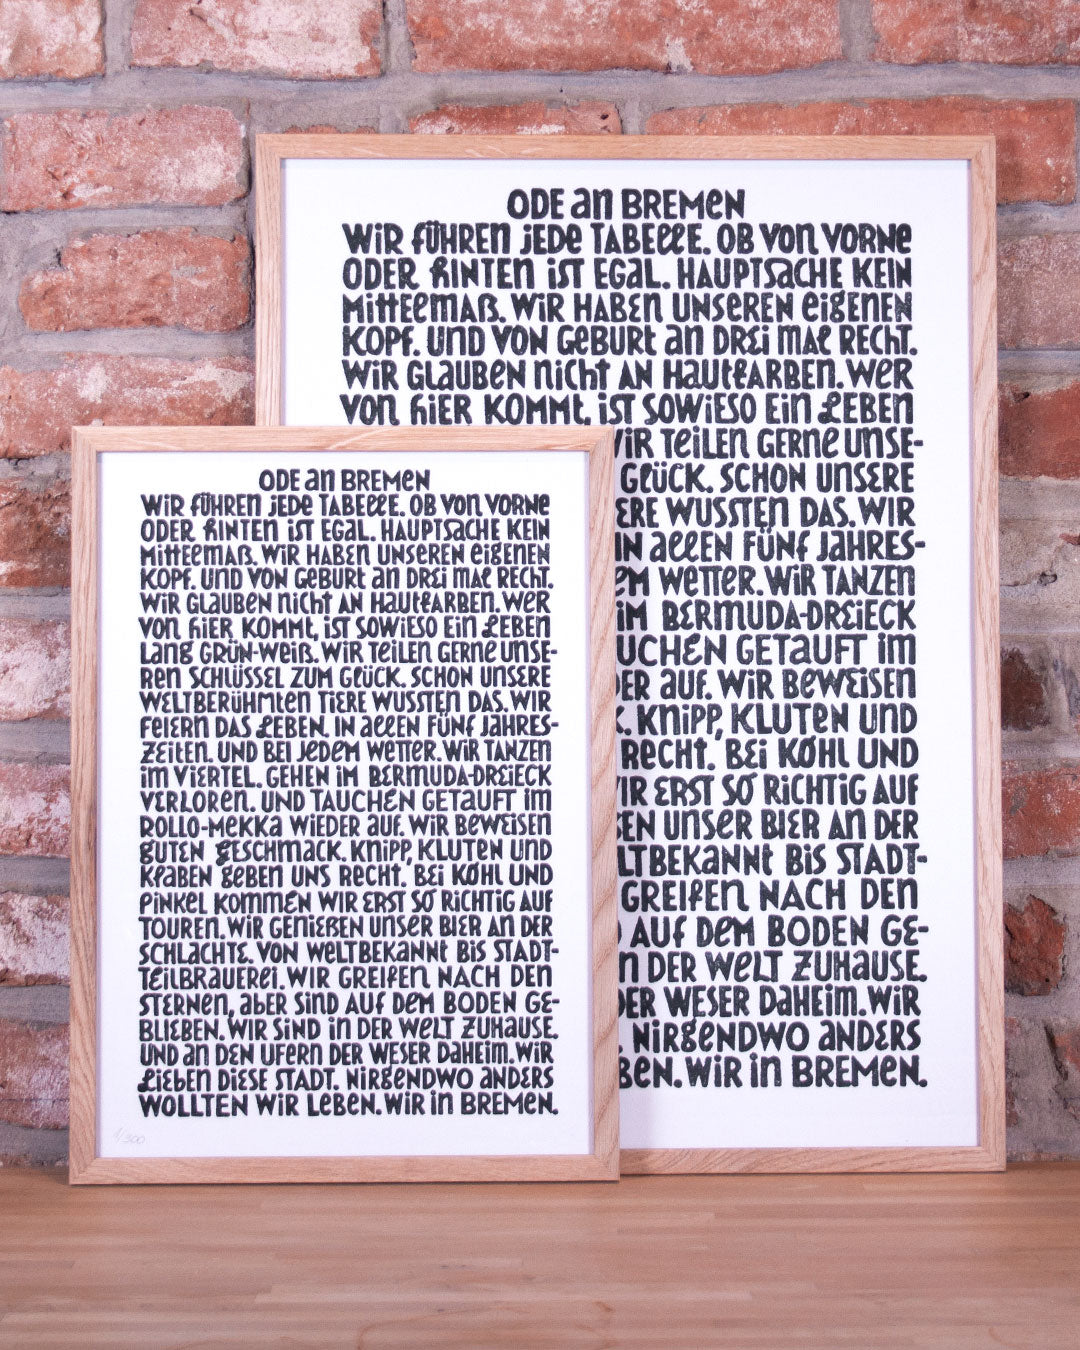 ODE an BREMEN
WiR fÜHREN jEDE TABELLE. OB VON VORNE
ODER HINTEN iST EGAL. HAUPTSACHE KEIN
MittELMAß. WiR HABEN UNSEREN EiGENEN
KOPF. UND VON GEBURt an DREi MAL RECHT.
WiR GLAUBEN niCht AN HAUtfARBEN. WER
VON hiER KOMMt, iST SOWiESO EiN LEBEN
LANG GRÜN-WEiß. WiR TEiLEN GERNE UNSE-
REN SCHLÜSSEL ZUM GLÜCK. SCHON UNSERE
WELTBERÜHMTEN TiERE WUSSTEN DAS. WiR
FEiERN DAS LEBEN. iN aLLEN FÜNf JAHRES-
ZEiTEN. UND BEi JEDEM WETTER. WiR TANZEN
iM ViERTEL. GEHEN iM BERMUDA-DREiECK
VERLOREN. UND TAUCHEN GETAUFT iM
ROLLO-MEKKA WiEDER AUF. WiR BEWEiSEN
GUTEN GESCHMACK. KNiPP, KLUTEN UND
KLABEN GEBEN UNS RECHT. BEi KOHL UND
PiNKEL KOMMEN WiR ERST SO RiCHTiG AUF
TOUREN. WiR GENiEßEN UNSER BiER AN DER
SCHLACHTE. VON WELTBEKANNt BiS STADT-
TEiLBRAUEREi. WiR GREiFEN NACH DEN
STERNEN, aBER SiND AUF DEM BODEN GE-
BLiEBEN. WiR SiND iN DER WELT ZUHAUSE.
UND an DEN UFERN DER WESER DAHEiM. WiR
LiEBEN DiESE STADT. NiRGENDWO aNDERS
WOLLTEN WiR LEBEN. WiR in BREMEN.
1/300
ODE an BREMEN
WiR fÜHREN jEDE TABELLE. OB VON VORNE
ODER HINTEN iST EGAL. HAUPTSACHE KEIN
MittELMAß. WiR HABEN UNSEREN EiGENEN
KOPF. UND VON GEBURt an DREi MAL RECHT.
WiR GLAUBEN niCht AN HAUtfARBEN. WER
VON hiER KOMMt, iST SOWiESO EiN LEBEN
WiR TEiLEN GERNE UNSE-
GLÜCK. SCHON UNSERE
WUSSTEN DAS. WiR
iN aLLEN FÜNf JAHRES-
WETTER. WiR TANZEN
iM BERMUDA-DREiECK
GETAUFT iM
AUF. WiR BEWEiSEN
KNiPP, KLUTEN UND
RECHT. BEi KOHL UND
ERST SO RiCHTiG AUF
UNSER BiER AN DER
BiS STADT-
GREiFEN NACH DEN
AUF DEM BODEN GE-
DER WELT ZUHAUSE.
DER WESER DAHEiM. WiR
NiRGENDWO ANDERS
WiR in BREMEN.